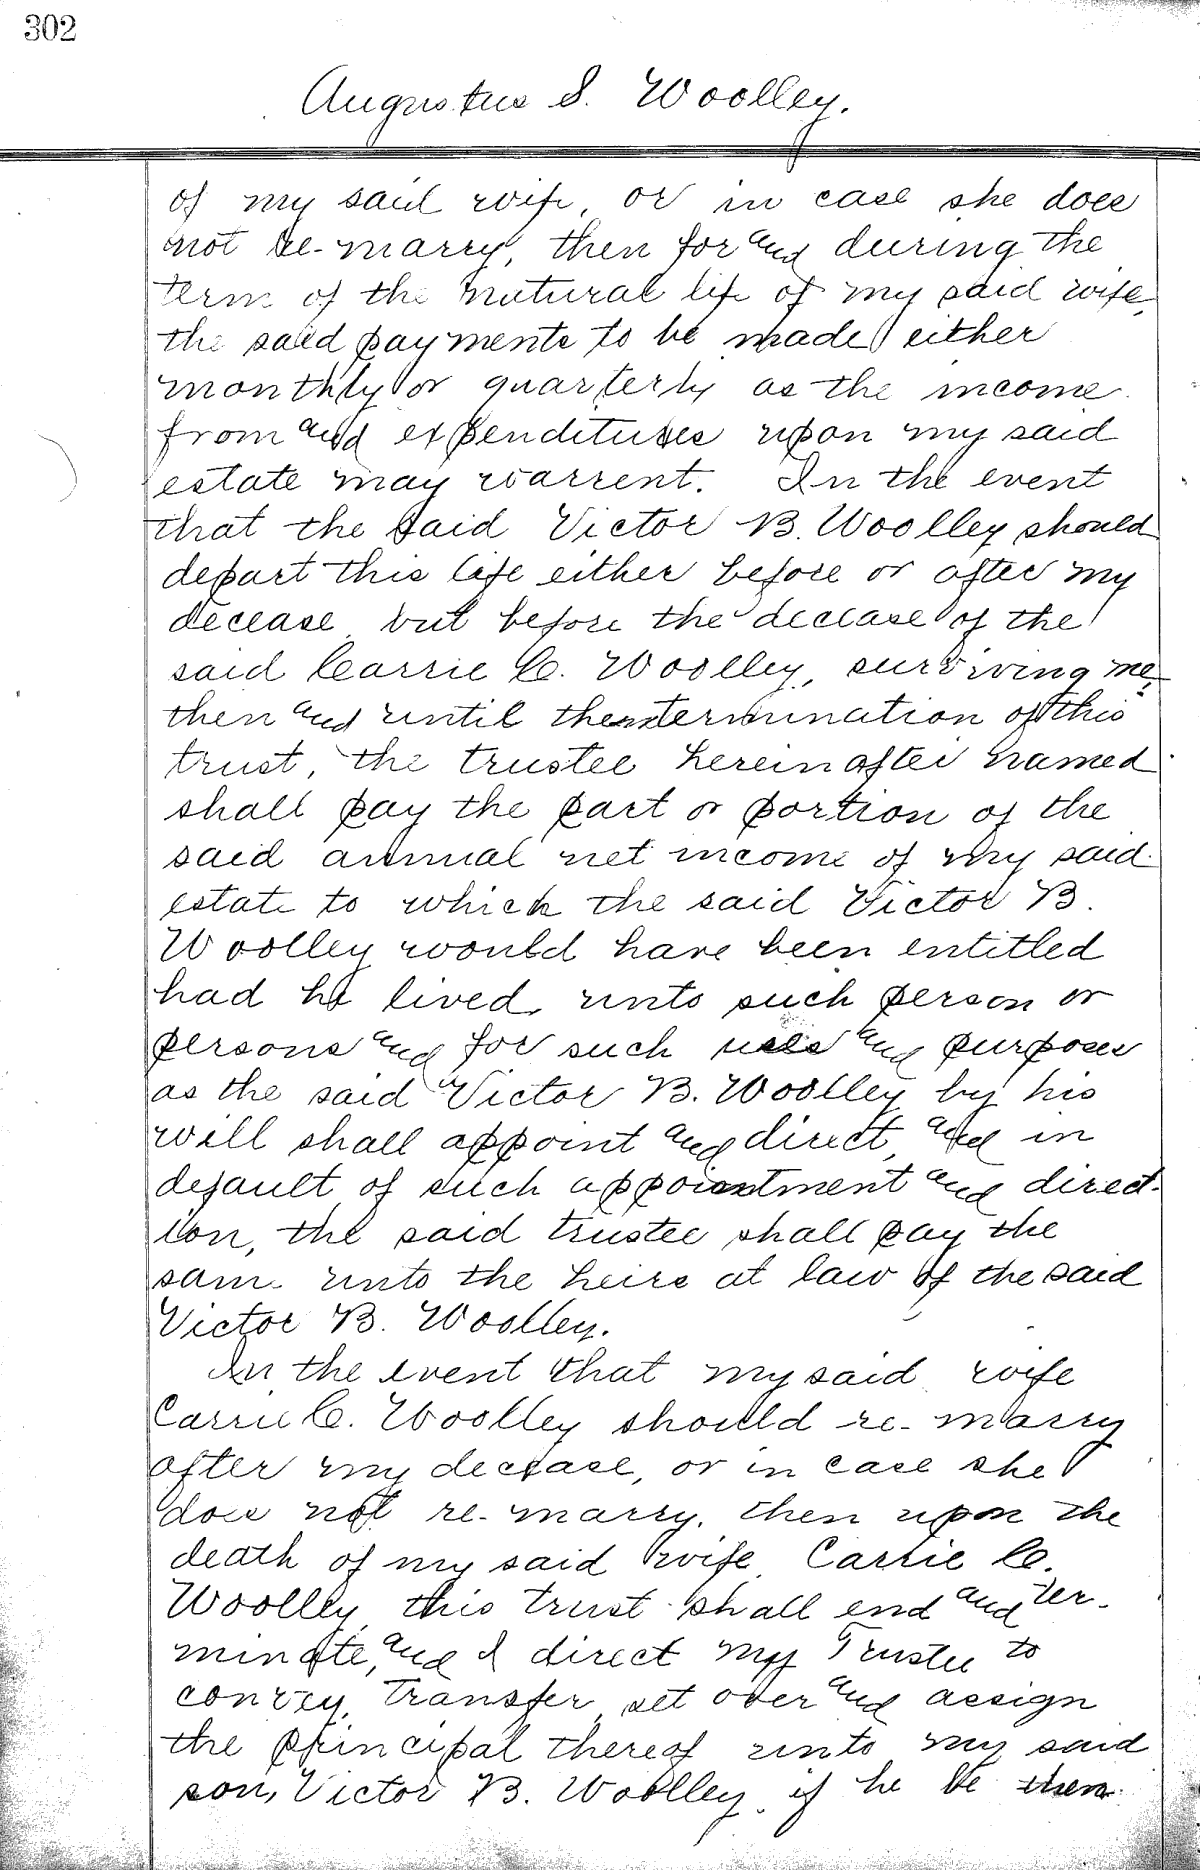 302
Augustus S. Woolley.
of my said wife, or in case she does
not re-marry, then for and during the
term of the natural life of my said wife,
the said payments to be made either
monthly or quarterly as the income
from and expenditures upon my said
estate may warrent. In the event
that the said Victor B. Woolley should
depart this life either before or after my
decease, but before the decease of the
said Carrie C. Woolley, surviving me,
then and until the termination of this
trust, the trustee hereinafter named
shall pay the part or portion of the
said annual net income of my said
estate to which the said Victor B.
Woolley would have been entitled
had he lived, unto such person or
persons and for such uses and purposes
as the said Victor B. Woolley by his
will shall appoint and direct, and in
default of such appointment and direct-
ion, the said trustee shall pay the
same unto the heirs at law of the said
Victor B. Woolley.
In the event that my said wife
Carrie C. Woolley should re-marry
after my decease, or in case she
does not re-marry, then upon the
death of my said wife, Carrie C.
Woolley, this trust shall end and ter-
minate, and I direct my Trustee to
convey, transfer, set over and assign
the principal thereof unto my said
son, Victor B. Woolley, if he be then